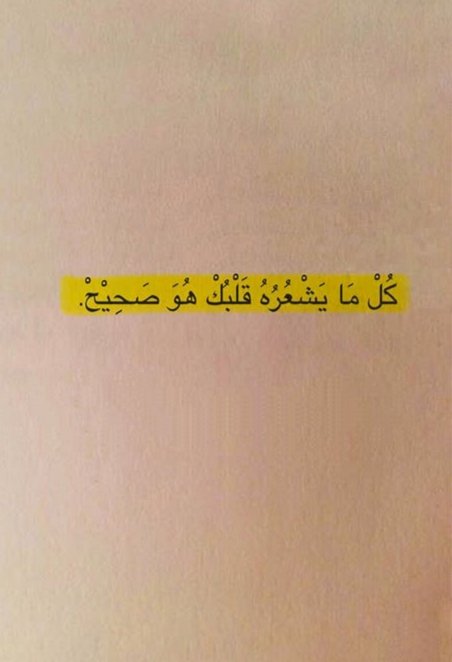 كُلْ مَا يَشْعُرُهُ قَلْبُكْ هُوَ صَحِيْحْ.